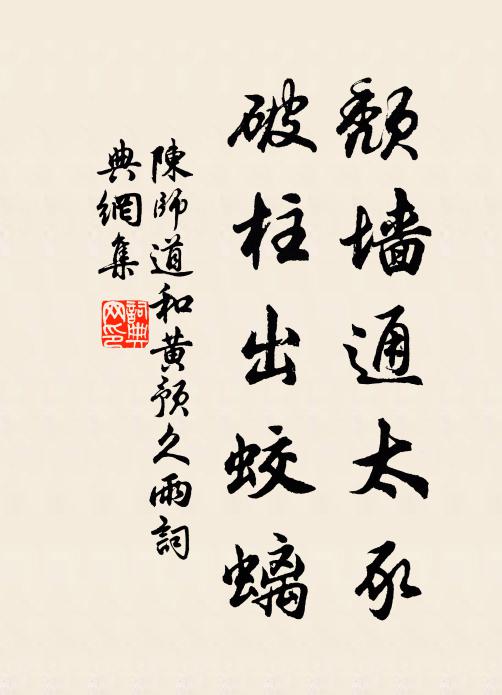 頹墙通太豕
破柱出蛟螭
陳師道和黄預久雨詞
典網集
詞典
网印